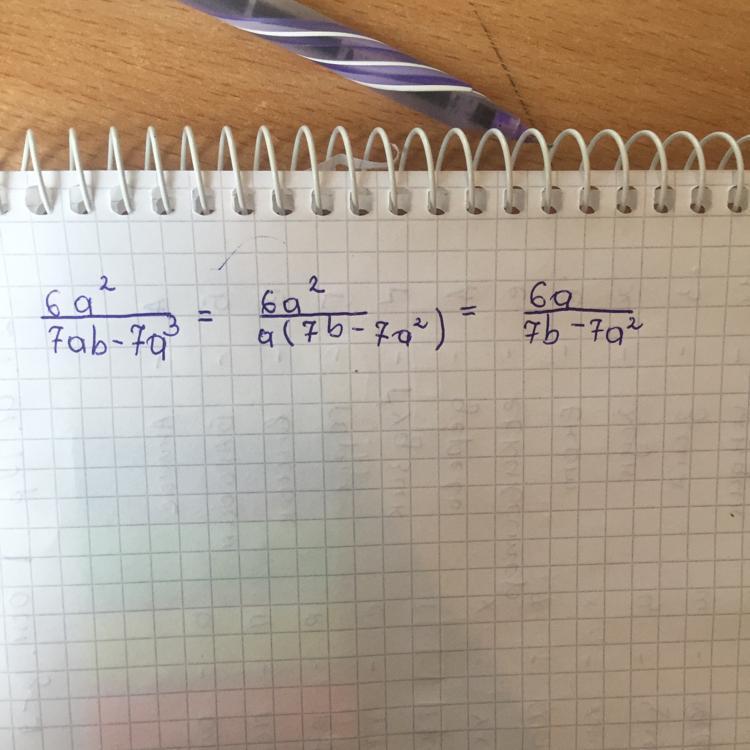 6a²/(7ab-7a³) = 6a²/(a(7b-7a²)) = 6a/(7b-7a²)